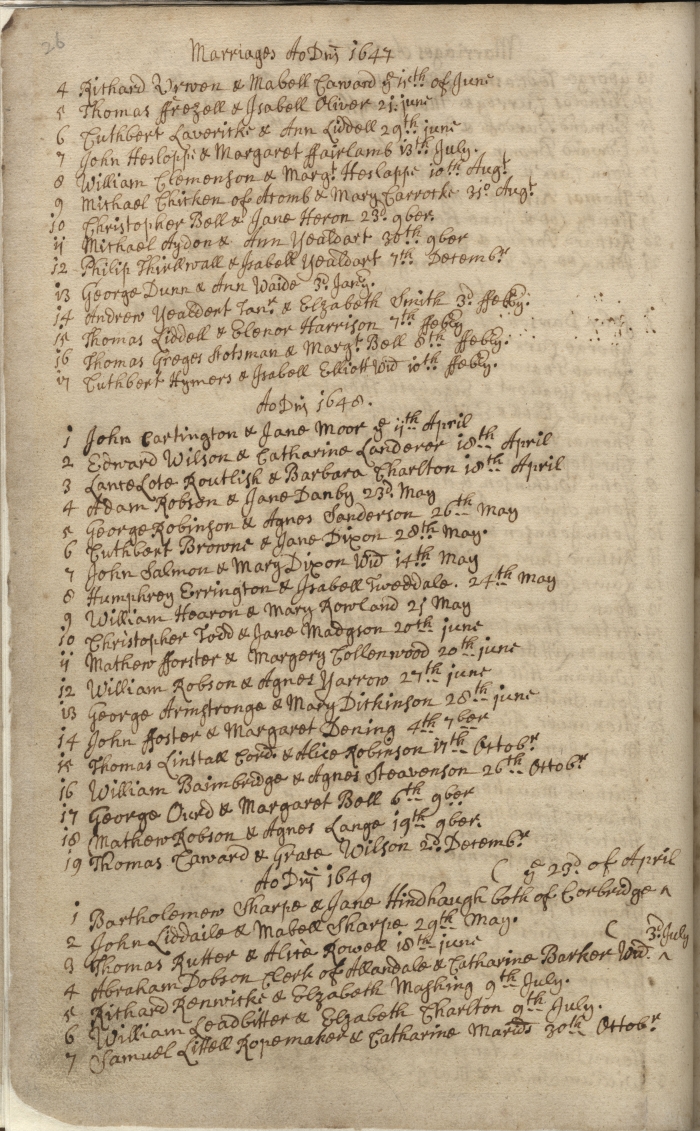 26
Marriages Ao Dnj 1647
4 Richard Urwen & Mabell Caward ye 15th of June
5 Thomas ffrezell & Isabell Oliver 21. june
6 Cuthbert Lavericke & Ann Liddell 29th june
7 John Hesloppe & Margaret ffairlamb 13th July.
8 William Clemenson & Margt Heslappe 10th Augt
9 Michael Chicken of Acomb & Mary Carrocke 31o Augt
10 Christopher Bell & Jane Heron 23d. 9ber.
11 Michael Aydon & Ann Yealdart 30th 9ber
12 Philip Thirllwall & Isabell Yealdart 7th Decembr
13 George Dunn & Ann Waide 3d Jany.
14 Andrew Yealdert Tanr & Elzabeth Smith 3d ffebry.
15 Thomas Liddell & Elenor Harrison 7th ffebry
16 Thomas Greges Scotsman & Margt Bell 8th ffebry.
17 Cuthbert Hymers & Isabell Elliott Wid 10th ffebry.
Ao Dnj 1648.
1 John Cartington & Jane Moor ye 11th April
2 Edward Wilson & Catharine Landerer 18th April
3 LanceLote Routlish & Barbara Charlton 18th April
4 Adam Robson & Jane Danby 23d May
5 George Robinson & Agnes Sanderson 26th May
6 Cuthbert Browne & Jane Dixon 28th May.
7 John Salmon & Mary Dixon Wid 14th May
8 Humphrey Errington & Isabell Tweddale. 24th May
9 William Hearon & Mary Rowland 21 May
10 Christopher Todd & Jane Madgson 20th june
11 Mathew fforster & Margery Collenwood 20th june
12 William Robson & Agnes Yarrow 27th june
13 George Armstronge & Mary Dickinson 28th june
14 John ffoster & Margaret Dening 4th 7ber
15 Thomas Linstall Cord. & Alice Robinson 17th Octobr
16 William Baimbridge & Agnes Steavenson 26th Octobr
17 George Ourd & Margaret Bell 6th 9ber
18 Mathew Robson & Agnes Lange 19th 9ber.
19 Thomas Caward & Grace Wilson 2d Decembr
Ao Dnj 1649 ( ye 23d of April
1 Bartholemew Sharpe & Jane Hindhaugh both of Corbridge ^
2 John Liddaile & Mabell Sharpe 29th May.
3 Thomas Rutter & Alice Rowell 18th june ( 3d July
4 Abraham Dobson Clerk of Allandale & Catharine Barker Wid. ^
5 Richard Renwicke & Elzabeth Mashing 9th July.
6 William Leadbitter & Elzabeth Charlton 9th July.
7 Samuel Littell Ropemaker & Catharine 30th Octobr